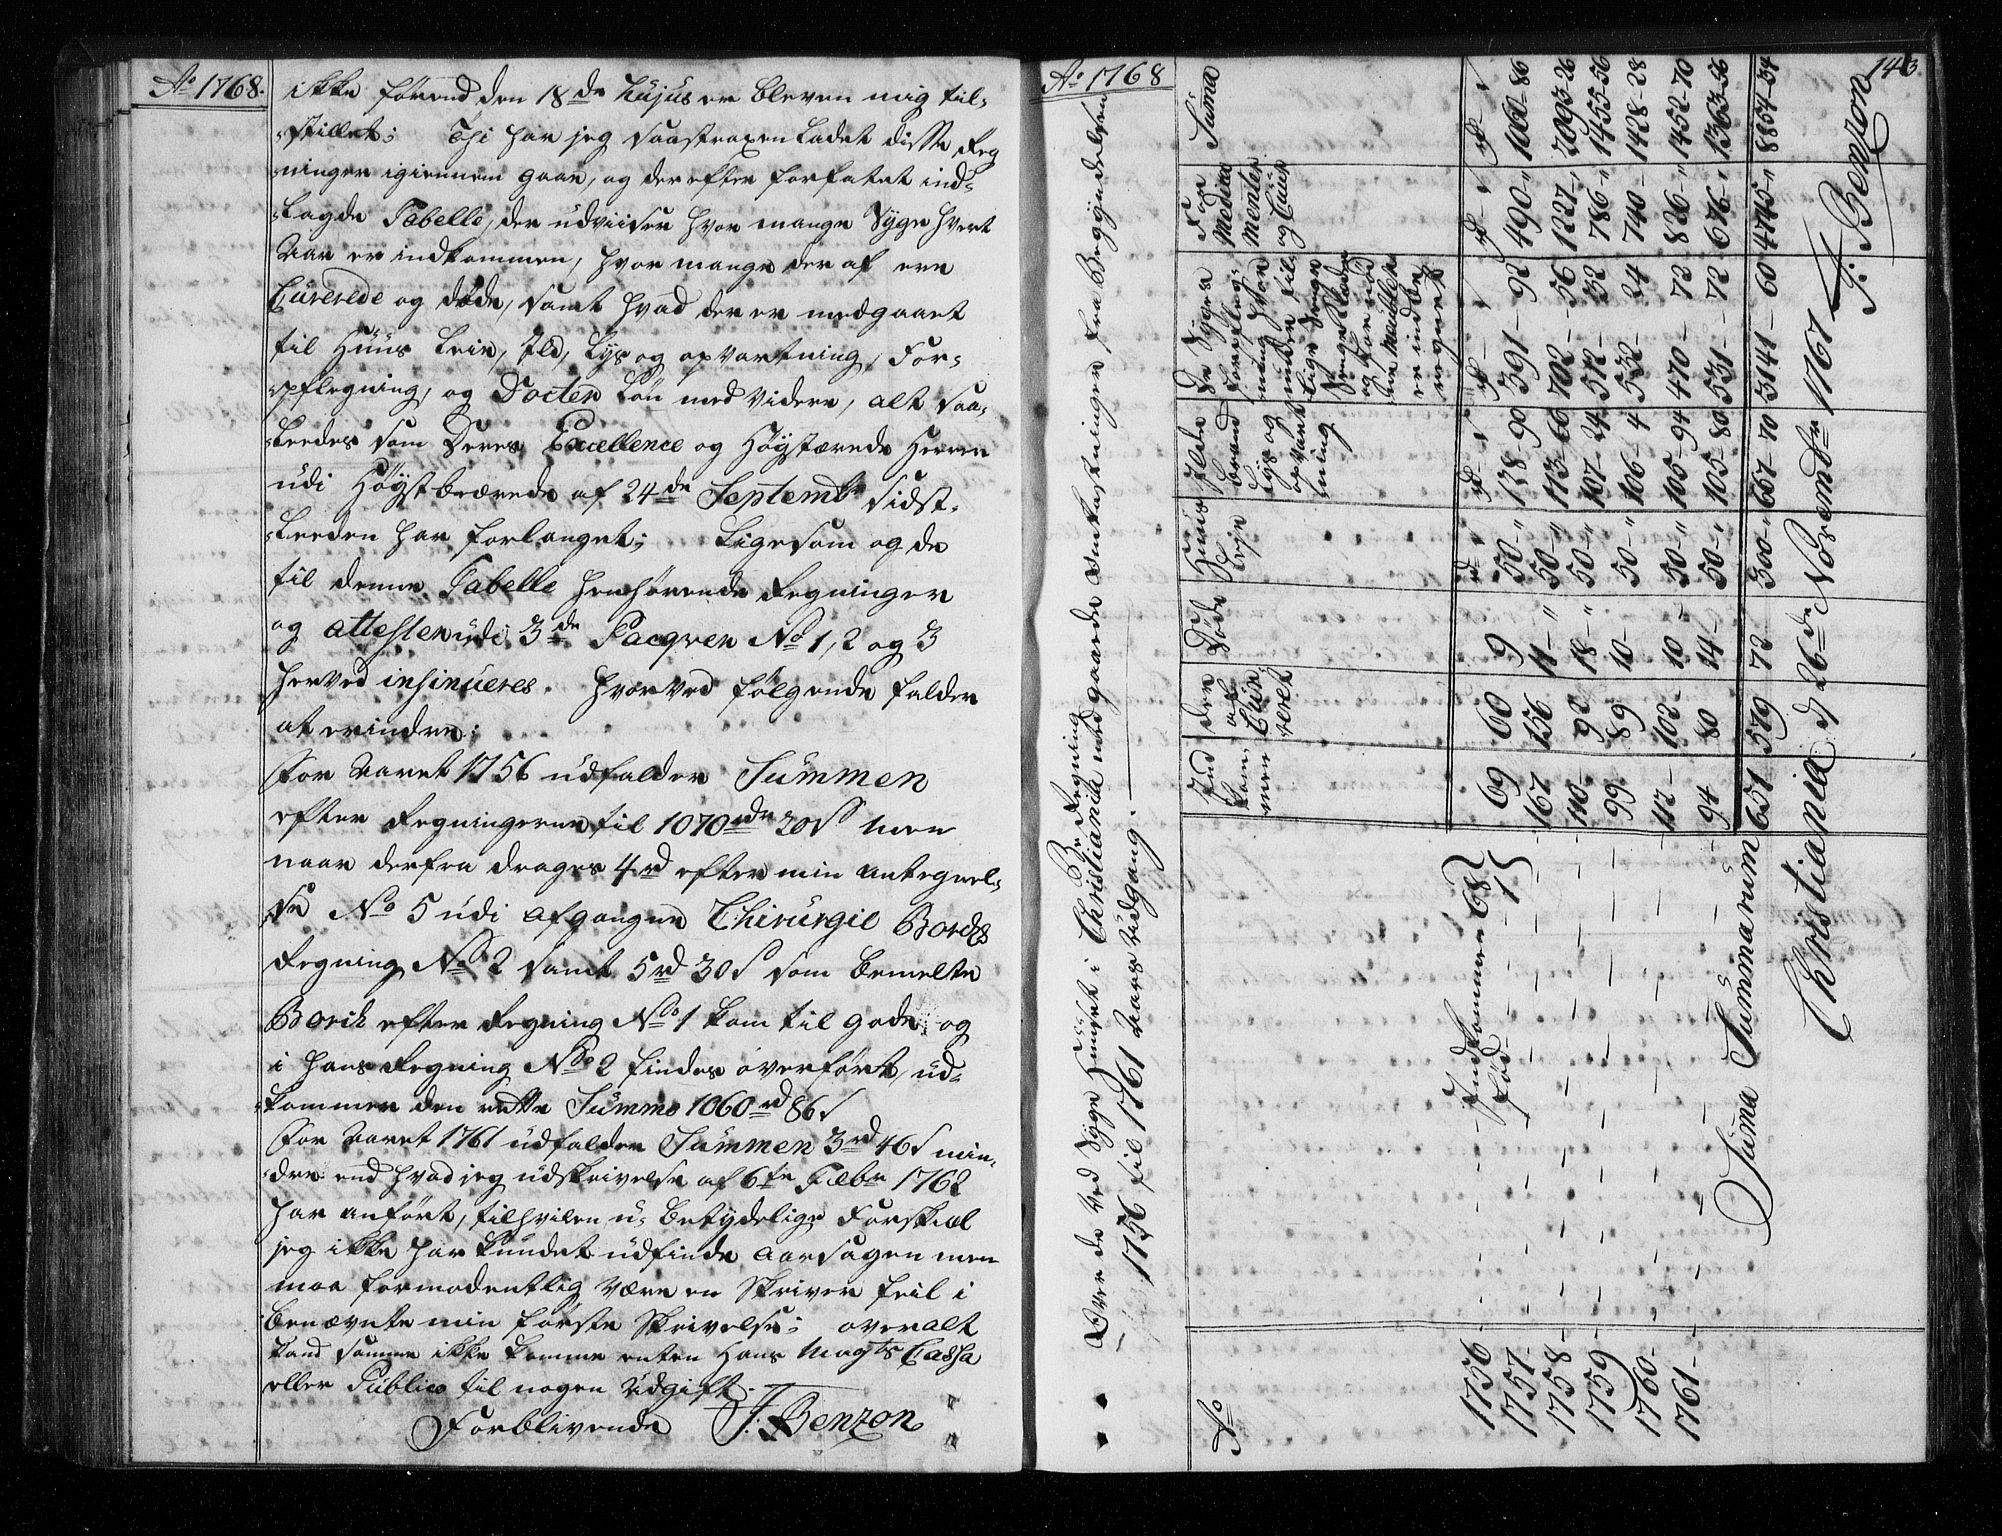 Ao 1768.
ikke førend den 18de hujus er bleven mig til-
-stillet; Thi har jeg saastraxen ladet disse Reg
ninger igiennem gaae, og derefter forfatet ind-
-lagde Tabelle, der udviiser hvor mange Syge hvert
Aar er indkommen, hvor mange der af ere
Curerede og døde, samt hvad der er medgaaet
til Huus Leie, Ild, Lys og opvartning, For-
-pflegning, og Docter Løn med videre, alt saa-
-leedes som Deres Excellence og Høystærede Herrer
udi Høystbeærede af 24de Septembr sidst-
-leeden har forlanget; Ligesom og de
til denne Tabelle henhørende Regninger
og attester udi 3de Pacqver No 1, 2 og 3
herved insinueres. Hvorved følgende falder
at erindre:
For Aaret 1756 udfalder Summen
efter Regningerne til 1070 rdr 20 s men
naar derfra drages 4 rd efter min Antegnel-
se No 5 udi afgangne Chirurgie Borchs
Regning No 2 samt 5 rd 30 s som bemelte
Borch efter Regning No 1 kom til gode, og
i hans Regning No 2 findes overført, ud-
-kommer den rette Summa 1060 rd 86 s
For Aaret 1761 udfalder Summen 3 rd 46 s min-
-dre end hvad jeg udskrivelse af 6te Febr 1762
har anført, til hvilken u-betydelige Forskiæl
jeg ikke har kundet udfinde Aarsagen men
maa formodentlig være en Skriver feil i
benævnte min første Skrivelse; overalt
kand samme ikke komme enten Hans Mayts Cassa
eller Publico til nogen Udgift.
Forblivende J: Benzon
Ao 1768
143.
Beregning
Over de ved Syge Huuset i Christiania medgaaede Omkostninger fra Begyndelsen
1756 til 1761 Aars Udgang.
Ao
Ind kom men
der af Cureret
Døde
Huus Leje
Ilde brand Lys og opvart ning
De Syges forpfleg- ning
For Medica menter og Cuur
Suma
1756 - Indkomne 68 Fød 1 69 60 9 50-" 128-90 391-92 490-" 1060-86
1757- 167 156 11-" 50-" 113-66 702-56 1227-" 2093-26
1758- 110- 92 18-" 50-" 107-24 572-32 786-" 1455-56
1759 99- 89 10- 50-" 106-4 532-24 740- 1428-28
1760- 112- 102- 10- 50-" 105-94 470-72 826-" 1452-70
1761- 94 80 14- 50-" 105-80 531-72 676-" 1363-56
Suma Summarum 651 579 72 300-" 667-70 3141-60 4745-" 8854-34
Christiania d 26de Novembr 1767 J: Benzon